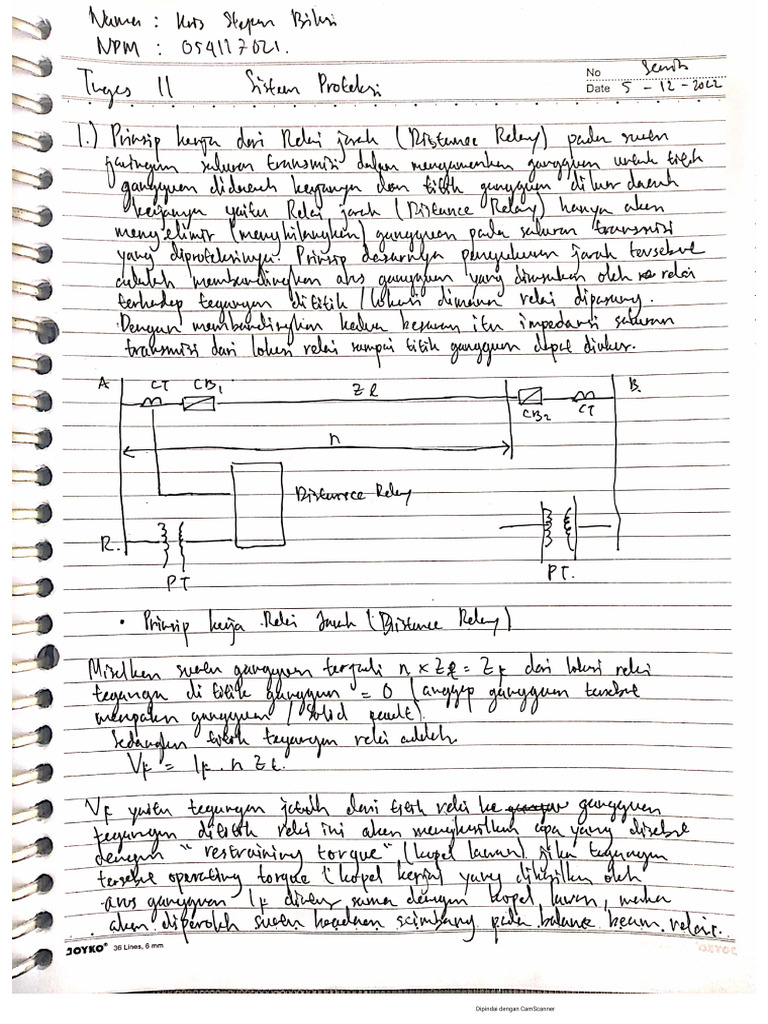 Nama : Kris Stepen
NPM : 054117021.
Tugas 11 Sistem Proteksi
No Senin
Date 5 - 12 - 2022
1.) Prinsip kerja dari Relai jarak (Distance Relay) pada suatu
jaringan saluran transmisi dalam mengamankan gangguan untuk titik
gangguan didaerah kerjanya dan titik gangguan diluar daerah
kerjanya yaitu Relai jarak (Distance Relay) hanya akan
(menghilangkan) gangguan pada saluran transmisi
yang diproteksinya. Prinsip dasarnya pengukuran jarak tersebut
adalah membandingkan arus gangguan yang dirasakan oleh relai
terhadap tegangan di titik / lokasi dimana relai dipasang.
Dengan membandingkan kedua besaran itu impedansi saluran
transmisi dari lokasi relai sampai titik gangguan dapat diukur.
A CT CB1 Zl B.
CB2 CT
n
Distance Relay
R.
PT PT.
• Prinsip kerja Relai Jarak (Distance Relay)
Misalkan suatu gangguan terjadi n x Zl = Zf dari lokasi relai
tegangan di titik gangguan = 0 (anggap gangguan tersebut
merupakan gangguan / solid fault).
Sedangkan titik tegangan relai adalah.
Vf = If . n Zl.
Vf yaitu tegangan jatuh dari titik relai ke gangguan
tegangan dititik relai ini akan menghasilkan apa yang disebut
dengan "restraining torque" (kopel lawan) jika tegangan
tersebut operating torque (kopel kerja) yang dihasilkan oleh
arus gangguan If sama dengan kopel lawan, maka
akan diperoleh suatu keadaan seimbang pada balance beam relai.
JOYKO® 36 Lines, 6 mm
Dipindai dengan CamScanner